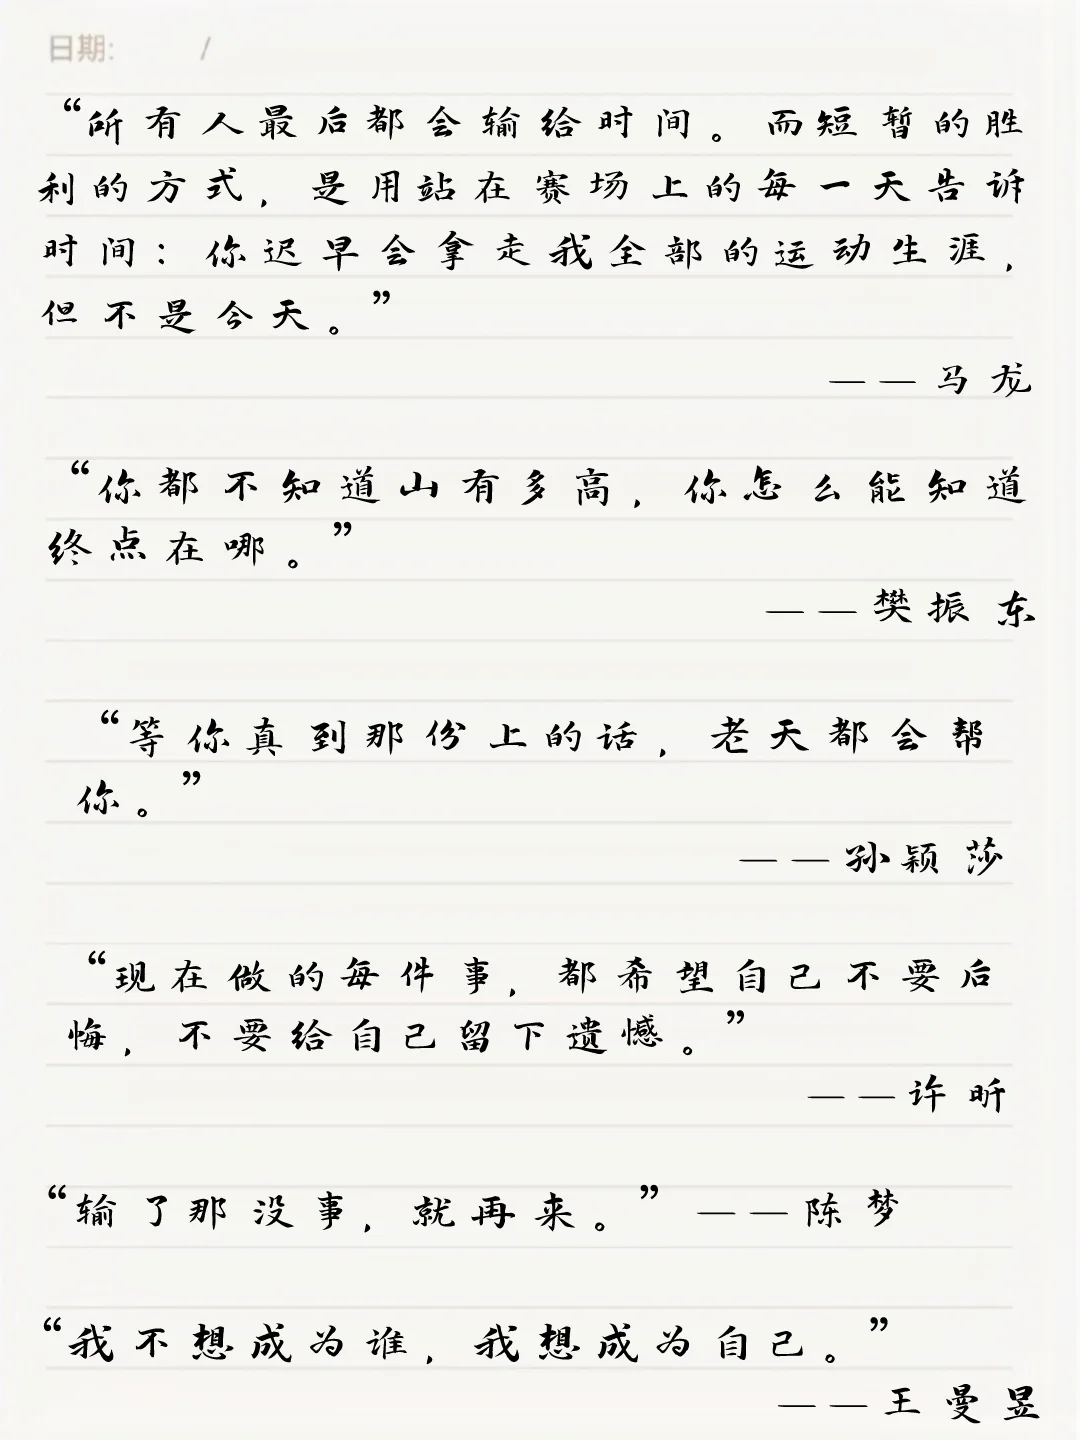 日期: /
“所有人最后都会输给时间。而短暂的胜
利的方式，是用站在赛场上的每一天告诉
时间：你迟早会拿走我全部的运动生涯，
但不是今天。”
——马龙
“你都不知道山有多高，你怎么能知道
终点在哪。”
——樊振东
“等你真到那份上的话，老天都会帮
你。”
——孙颖莎
“现在做的每件事，都希望自己不要后
悔，不要给自己留下遗憾。”
——许昕
“输了那没事，就再来。”——陈梦
“我不想成为谁，我想成为自己。”
——王曼昱